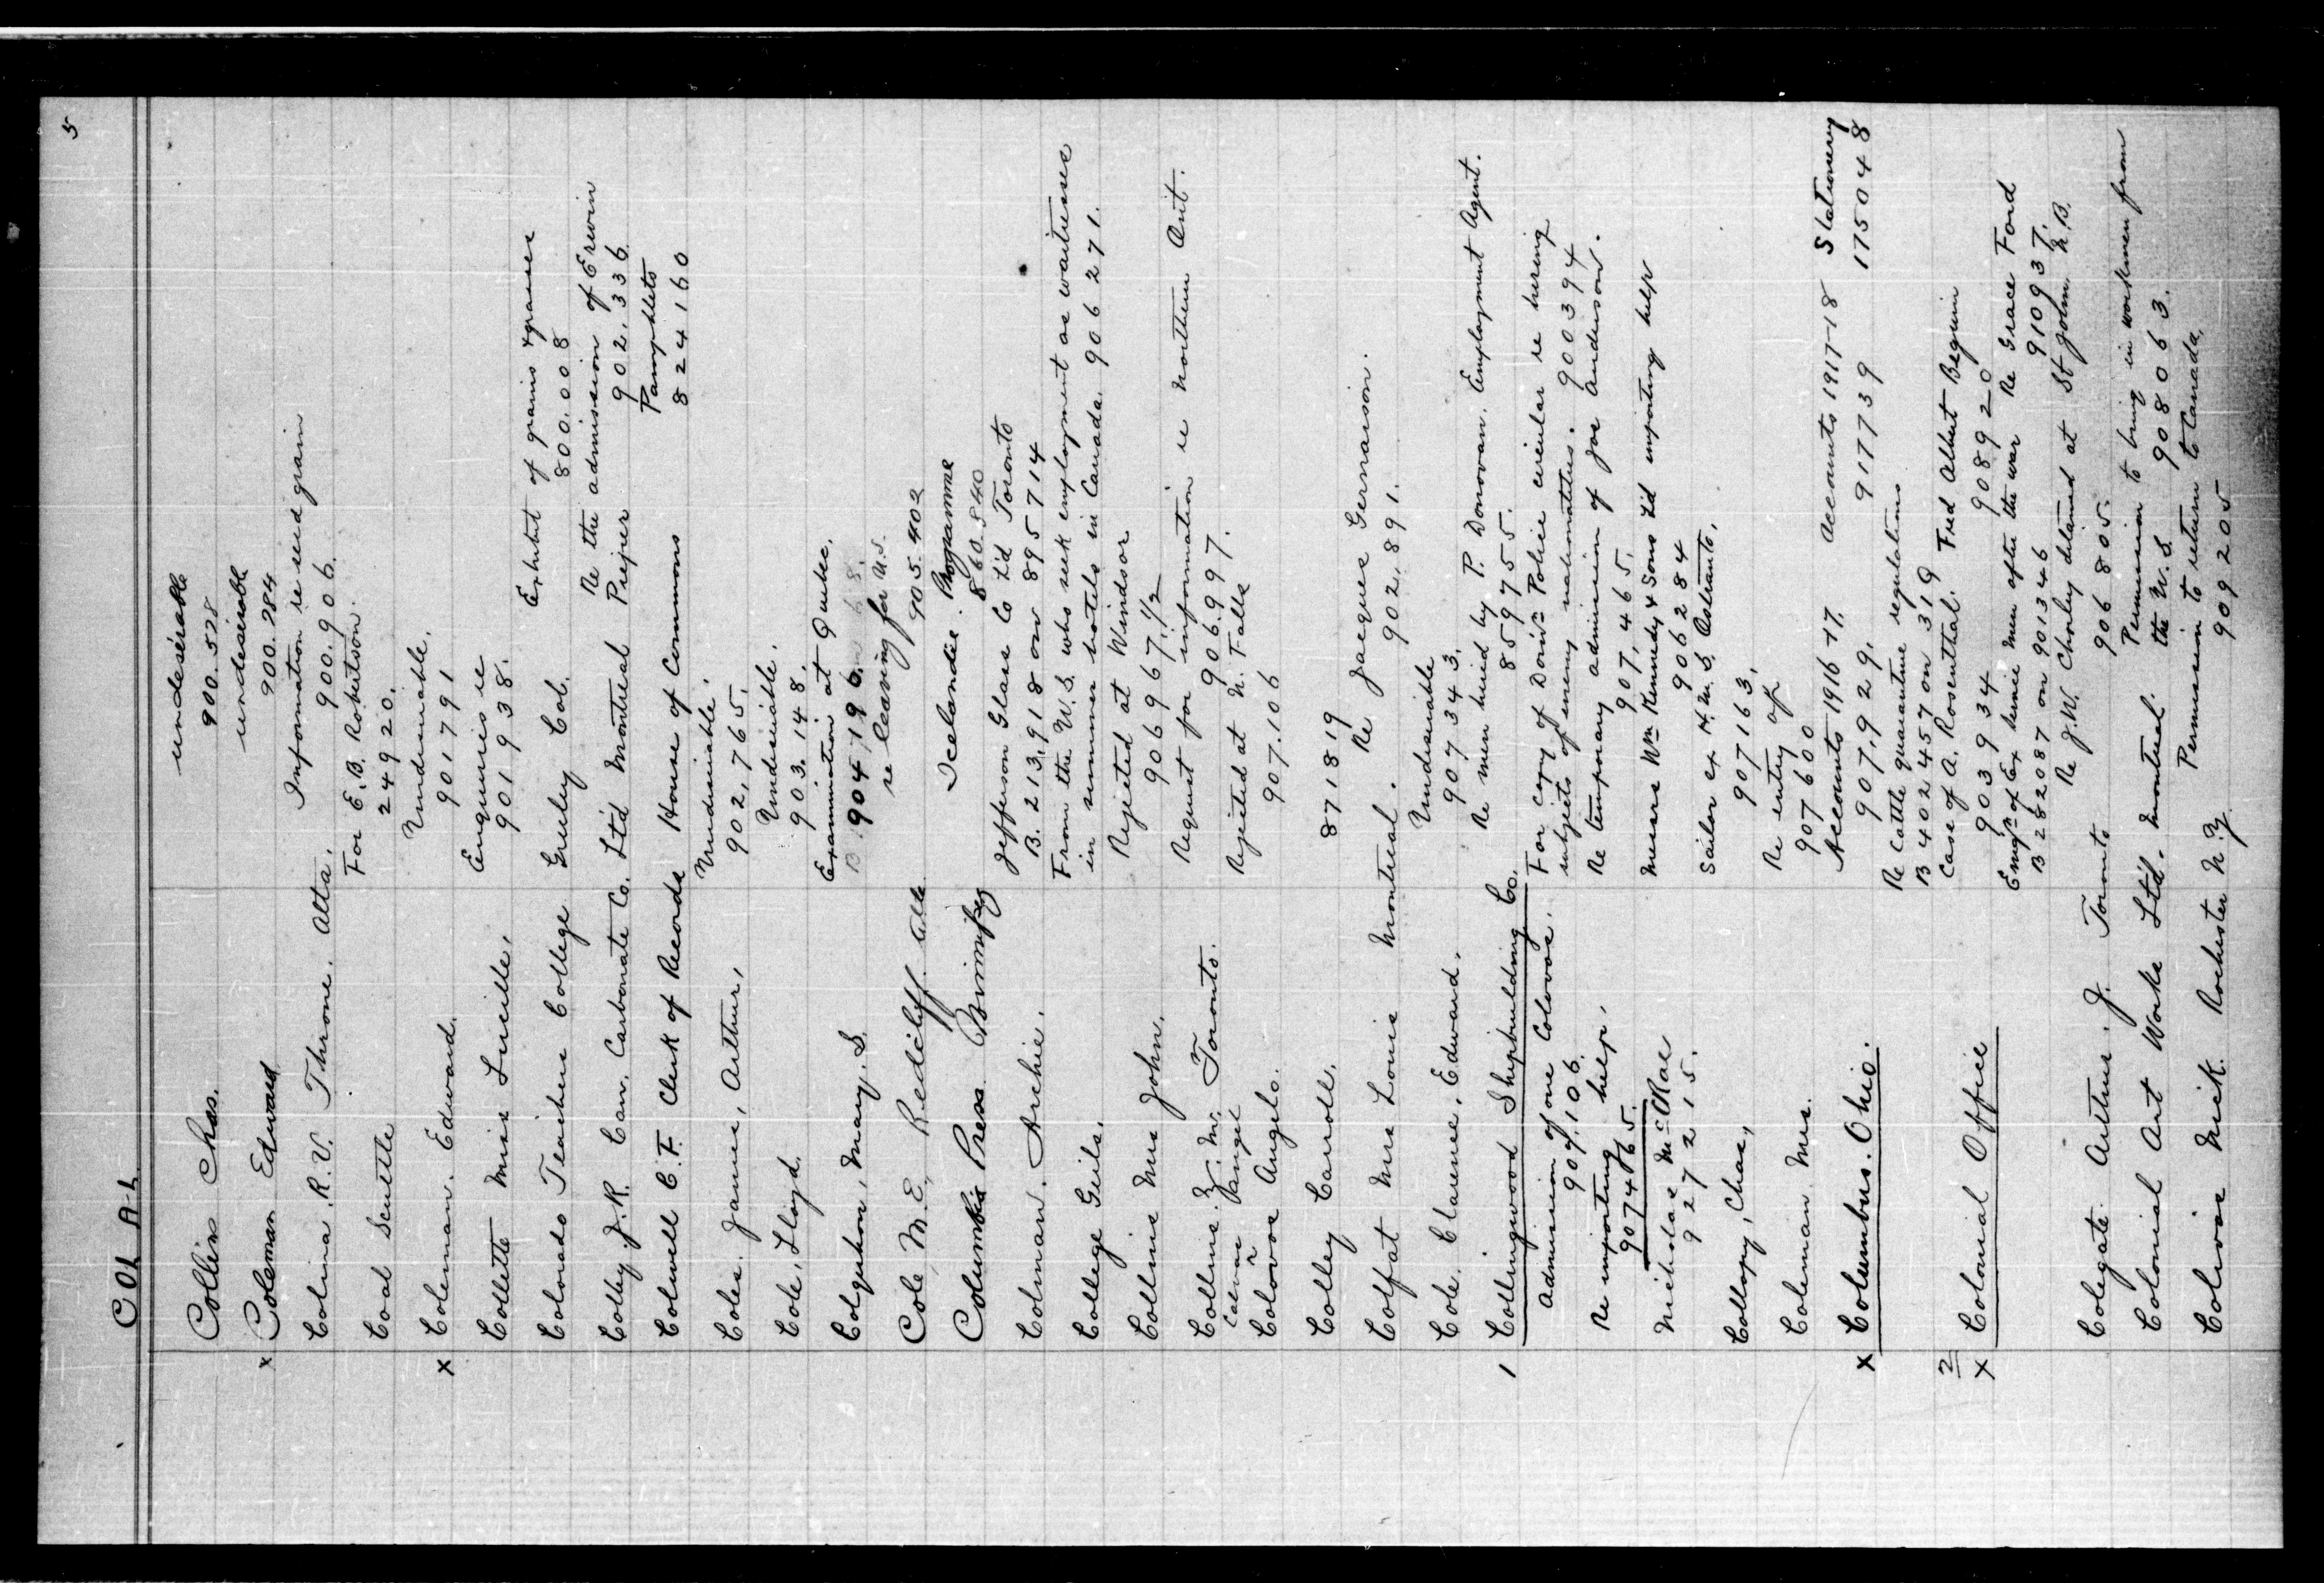 5
COL A-L
Collin Chas. undesirable
900.528
x Coleman Edward undesirable
900.284
Colma. R.V. Throne. Alta. Information re seed grain
900.906.
Coal Scuttle For E.B. Robertson.
24920.
x Coleman. Edward. Undesirable.
901791
Collette Miss Lucille, Enquiries re
901938.
Colorado Teachers College Greeley Col. Exhibit of grains & grasses
800.008
Colley J.R. Can. Carbonate Co. Ltd Montreal Re the admission of Erwin Preper
902,336.
Colwell C.F. Clerk of Records House of Commons Pamphlets
824160
Coles. James, Arthur, Undesirable.
902,765.
Cole, Lloyd. Undesirable.
903.148.
Colquhon, Mary. S. Examination at Quebec.
B. 904796.
Cole, M.E. Redcliff. Alta re leaving for U.S.
905.402
Columbia Press Winnipeg Icelandic Programme
860.840
Colman. Archie. Jefferson Glass Co L'd Toronto
B. 213,918 on 895714
College Girls. From the U.S. who seek employment as waitresses
in summer hotels in Canada. 906271.
Collins Mrs John. Rejected at Windsor
906967.1/2
Collins. Toronto. Request for information re northern Ont.
906.997.
Colovos Angelo. Rejected at N. Falls
907.106
Colley Carroll. 871819
Colfat Mrs Louis Montreal. Re Jacques Gernaison.
902,891.
Cole. Clarence. Edward. Undesirable
907343.
1 Collingwood Shipbuilding Co. Re men hired by P. Donovan. Employment Agent.
859755.
Admission of one Colovos. For copy of Domn Police circular re hiring
907,106. subjects of enemy nationalities. 900394
Re importing help, Re temporary admission of Joe Anderson.
907465. 907,465.
Nicholas McRae Messrs Wm Kennedy & Sons L'd importing help
927215. 906284
Collopy, Chas, Sailor ex H.M.S.
907163,
Coleman Mrs. Re entry of
907600
x Columbus. Ohio. Accounts 1916-17. Accounts 1917-18 Stationery
907,929, 917739 175048
Re Cattle quarantine regulations
B 402457 on 319
2 x Colonial Office Case of A. Rosenthal. Fred Albert Beguin
903934 908920
Empt of Ex service men after the war Re Grace Ford
B 282087 on 901346 910937.
Colegate. Arthur. J. Toronto Re J.W. Chorley detained at St John. N.B.
906805.
Colonial Art Works Ltd. Montreal. Permission to bring in workmen from
the U.S. 908063.
Colovis Nick. Rochester N.Y. Permission to return to Canada,
909205